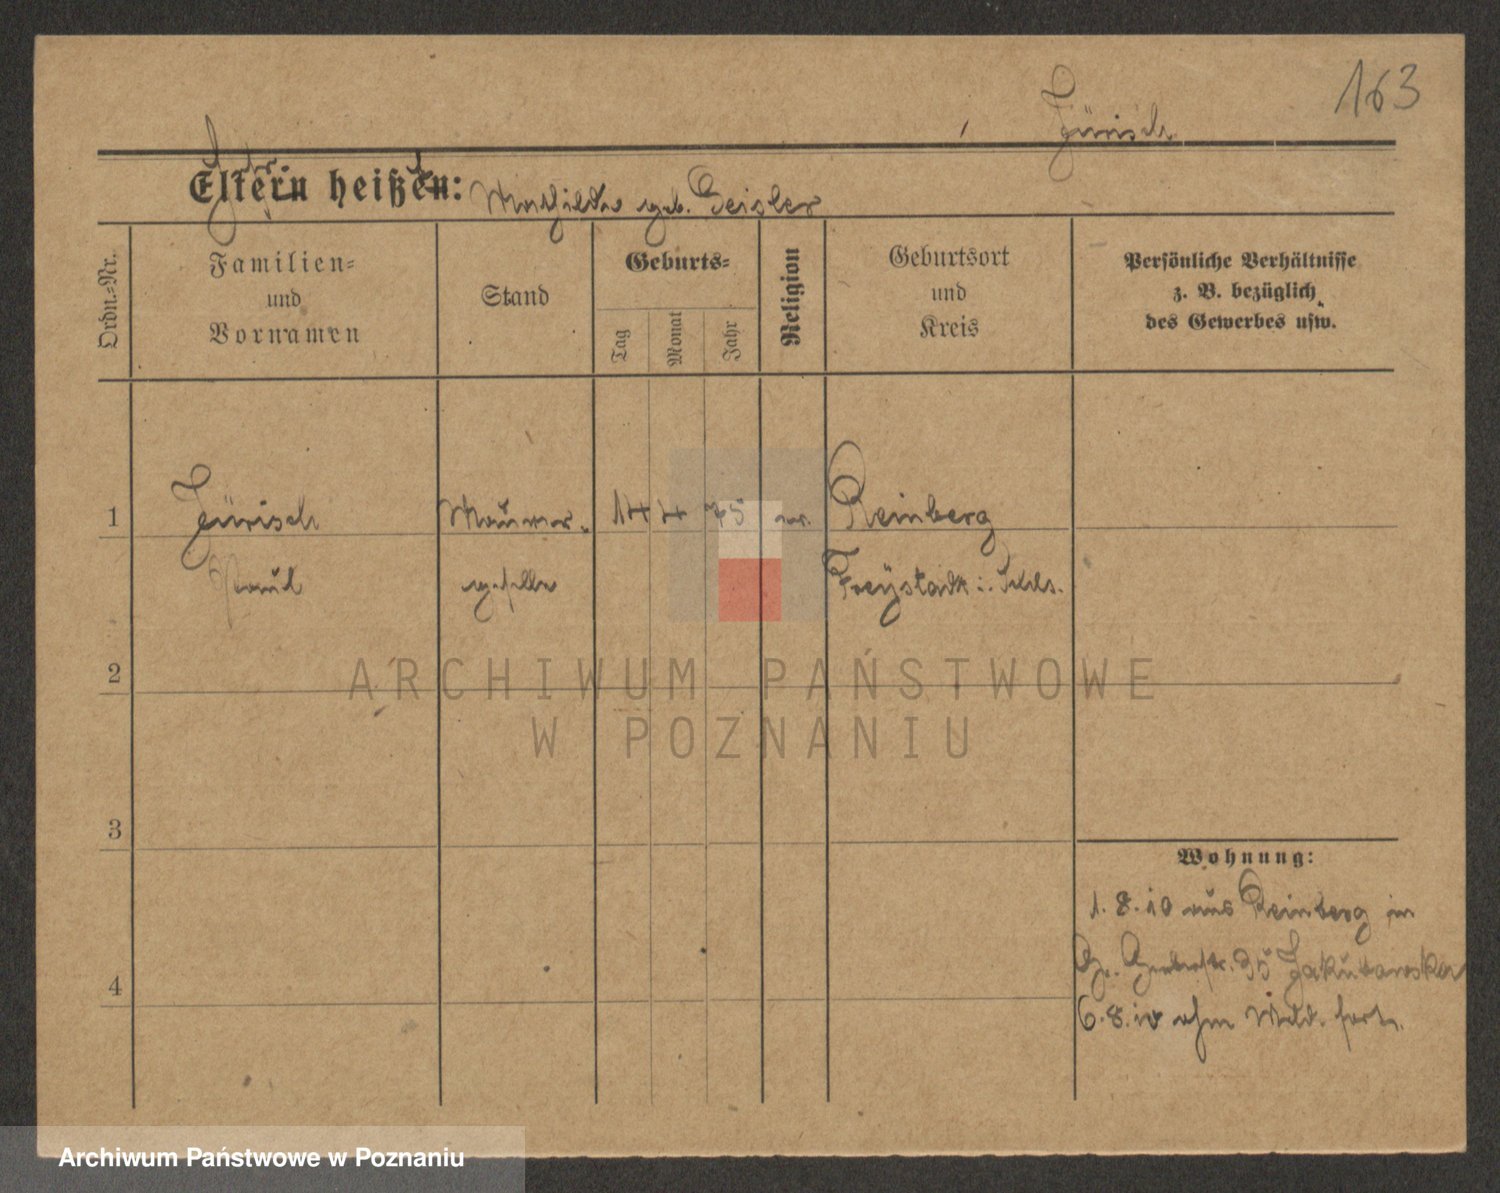 163
Jürisch
Eltern heißen: Mathilde geb. Geisler
Ordn.=Nr.
Familien=
und
Vornamen
Stand
Geburts=
Tag
Monat
Jahr
Religion
Geburtsort
und
Kreis
Persönliche Verhältnisse
z. B. bezüglich
des Gewerbes usw.
1 Jürisch Maurer= 14 4 75 ev. Reinberg
Paul geselle Freystadt i. Schls.
2
3
4
Wohnung:
1. 8. 10 aus Reinberg in
Gr. Gerberstr. 35 Jakubowska
6. 8. 10 ohne Meld. fort.
ARCHIWUM PAŃSTWOWE
W POZNANIU
Archiwum Państwowe w Poznaniu